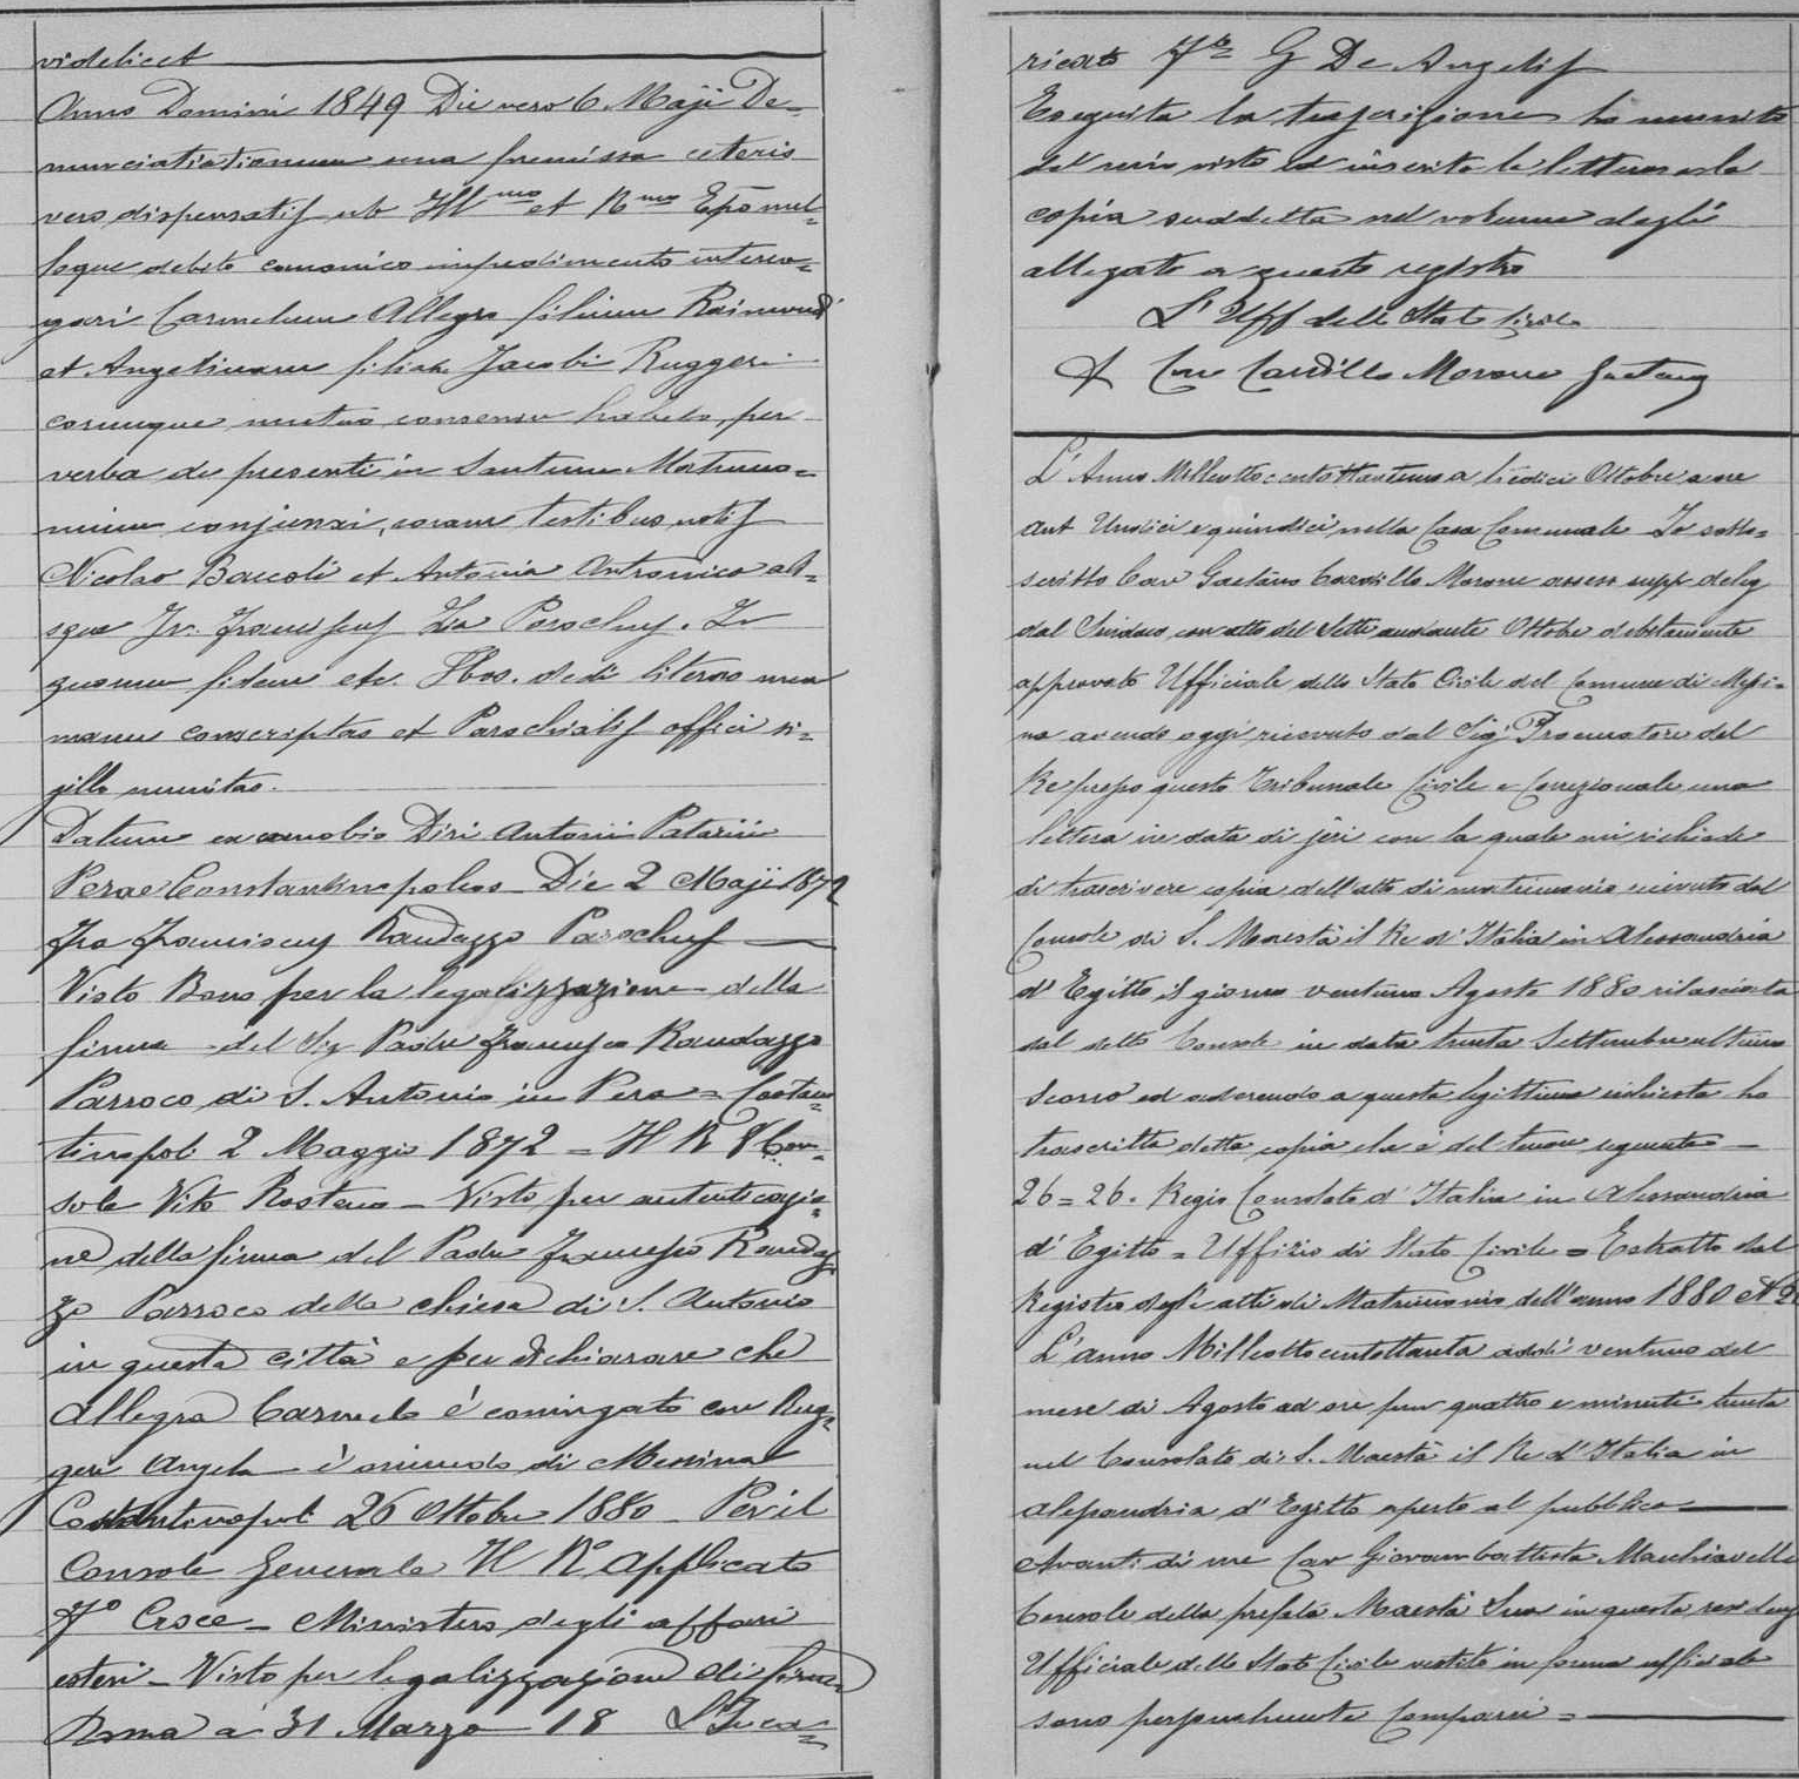 videlicet
Anno Domini 1849 Die vero 6 Maji De=
nunciatiationum una premissa ceteris
vero dispensatis ab Ill mo et R mo Epō nul=
loque debito canonico impedimento interro=
gavi Carmelum Allegra filium Raimundi
et Angelinam filiam Jacobi Ruggeri
eorumque mutuo consensu habito, per
verba de presenti in Santum Matrimo=
nium conjunxi, coram testibus notis
Nicolao Baccoli et Antonia Antronico at=
sque In
quorum fidem etc. Has dedi literas mea
manu conscriptas et Parochialis offici si=
gillo munitas.
Datum ex cenobio Divi Antonii Patavii
Perae Constantinopoleos Die 2 Maji 1872
Fra Franciscus Randazzo Parochus
Visto Bono per la legalizzazione della
firma del Sig Padre Francesco Randazzo
Parroco di S. Antonio in Pera = Costan=
tinopoli 2 Maggio 1872 = Il R V Con=
sole Vito Rostano _ Visto per autenticazio=
ne della firma del Padre Francesco Randaz
zo Parroco della chiesa di S. Antonio
in questa città e per dichiarare che
Allegra Carmelo è coniugato con Rug=
geri Angela è oriundo di Messina
Costantinopoli 26 Ottobre 1880 _ Per il
Console Generale Il R° Applicato
F° Croce _ Ministero degli affari
esteri _ Visto per legalizzazione di firma
Roma a 31 Marzo 18 L'Inca=
ricato G De Angelis
Eseguita la trascrizione ho munito
del mio visto ed inserito la lettera e la
copia suddetta nel volume degli
allegati a questo registro
L'Uff dello Stato Civile
Cav Cardillo Morone Gaetano
L'Anno Milleottocentottantuno a lì dodici Ottobre a ore
ant Undici e quindici nella Casa Comunale Io sotto=
scritto Cav Gaetano Cardillo Morone assess supp deleg
dal Sindaco con atto del Sette andante Ottobre debitamente
approvato Ufficiale dello Stato Civile del Comune di Messi=
na avendo oggi ricevuto dal Sig Procuratore del
Re presso questo Tribunale Civile e Correzionale una
lettera in data di jeri con la quale mi richiede
di trascrivere copia dell'atto di matrimonio ricevuto dal
Console di S. Maestà il Re d'Italia in Alessandria
d'Egitto il giorno ventuno Agosto 1880 rilasciata
dal detto Console in data trenta Settembre ultimo
scorso ed aderendo a questa legittima richiesta ho
trascritta detta copia che è del tenore seguente _
26 = 26. Regio Consolato d'Italia in Alessandria
d'Egitto = Uffizio di Stato Civile = Estratto dal
Registro degli atti di Matrimonio dell'anno 1880
L'anno Milleottocentottanta addì ventuno del
mese di Agosto ad ore pom quattro e minuti trenta
nel Consolato di S. Maestà il Re d'Italia in
Alessandria d'Egitto aperto al pubblico
Avanti di me Cav Giovambattista Macchiavelli
Console della prefata Maestà Sua in questa
Ufficiale dello Stato Civile vestito in forma ufficiale
sono personalmente Comparsi =